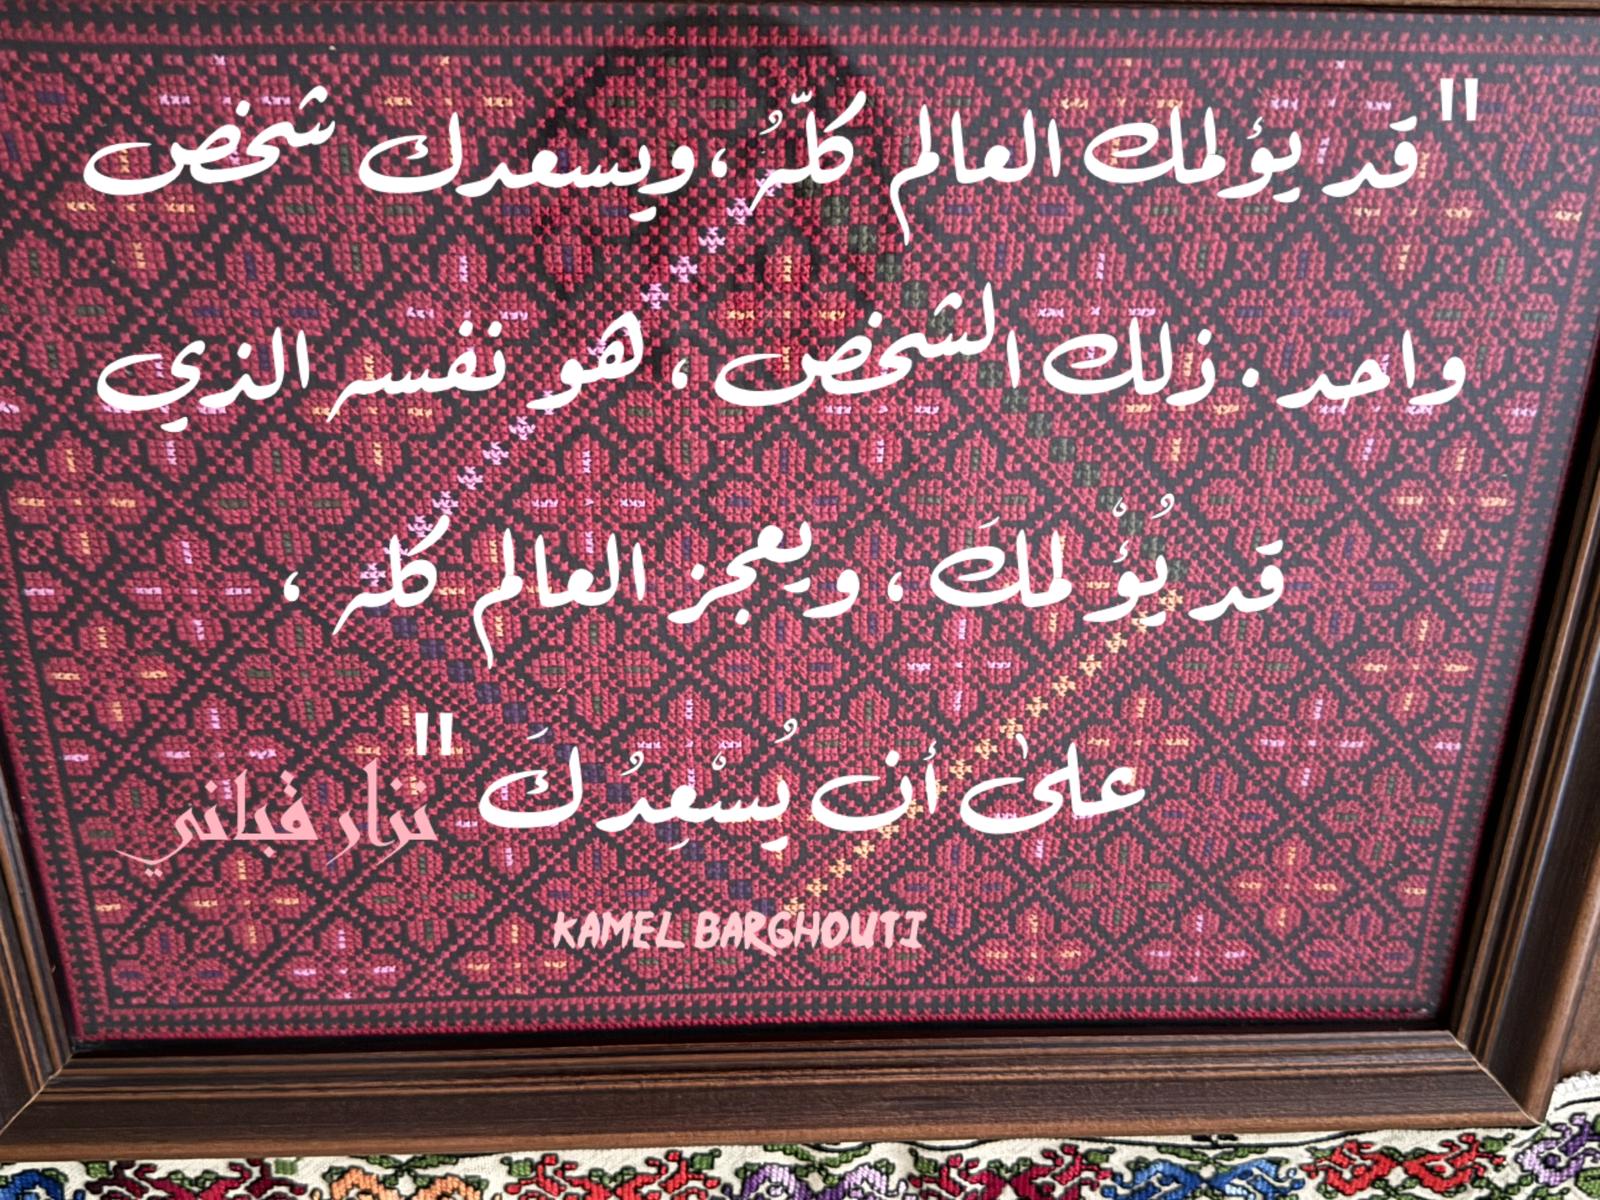 "قد يؤلمك العالم كلّهُ ، ويسعدك شخص
واحد . ذلك الشخص ، هو نفسه الذي
قد يُؤْلمكَ ، ويعجز العالم كله ،
علىٰ أن يُسْعِدُكَ "
نزار قباني
KAMEL BARGHOUTI